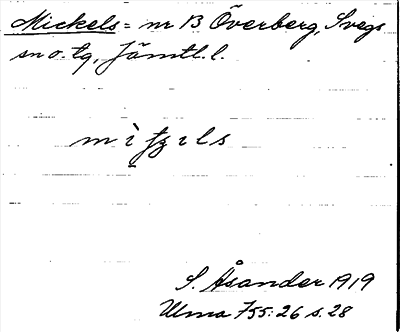 Mickels = nr 13 Överberg, Svegs
sn o. tg, Jämtl. l.
m ì̠ tʒ ı l s
S. Åsander 1919
Ulma 755:26 s. 28